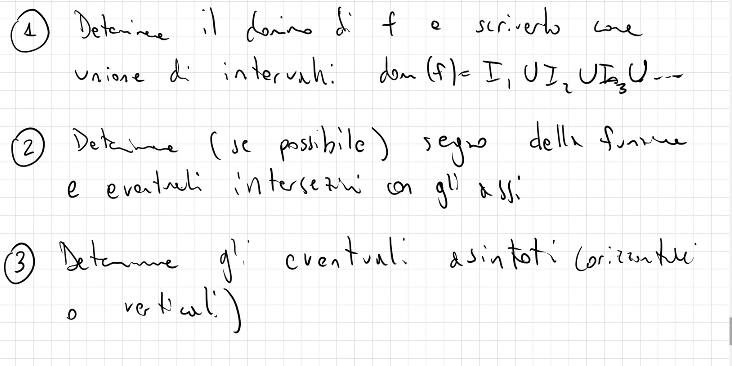 ① Determinare il dominio di f e scriverlo come
unione di intervalli: dom (f) = I₁ ∪ I₂ ∪ I₃ ∪ ...
② Determinare (se possibile) segno della funzione
e eventuali intersezioni con gli assi
③ Determinare gli eventuali asintoti (orizzontali
o verticali)